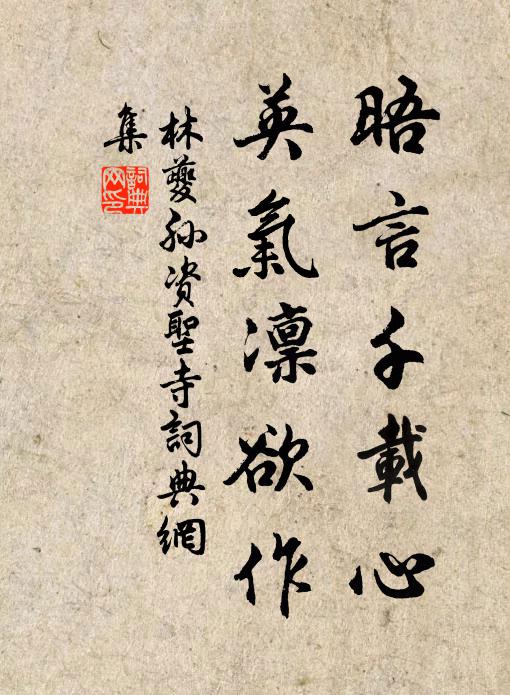 晤言千載心
英氣凜欲作
林夔孙资聖寺詞典網
集
詞典
网印